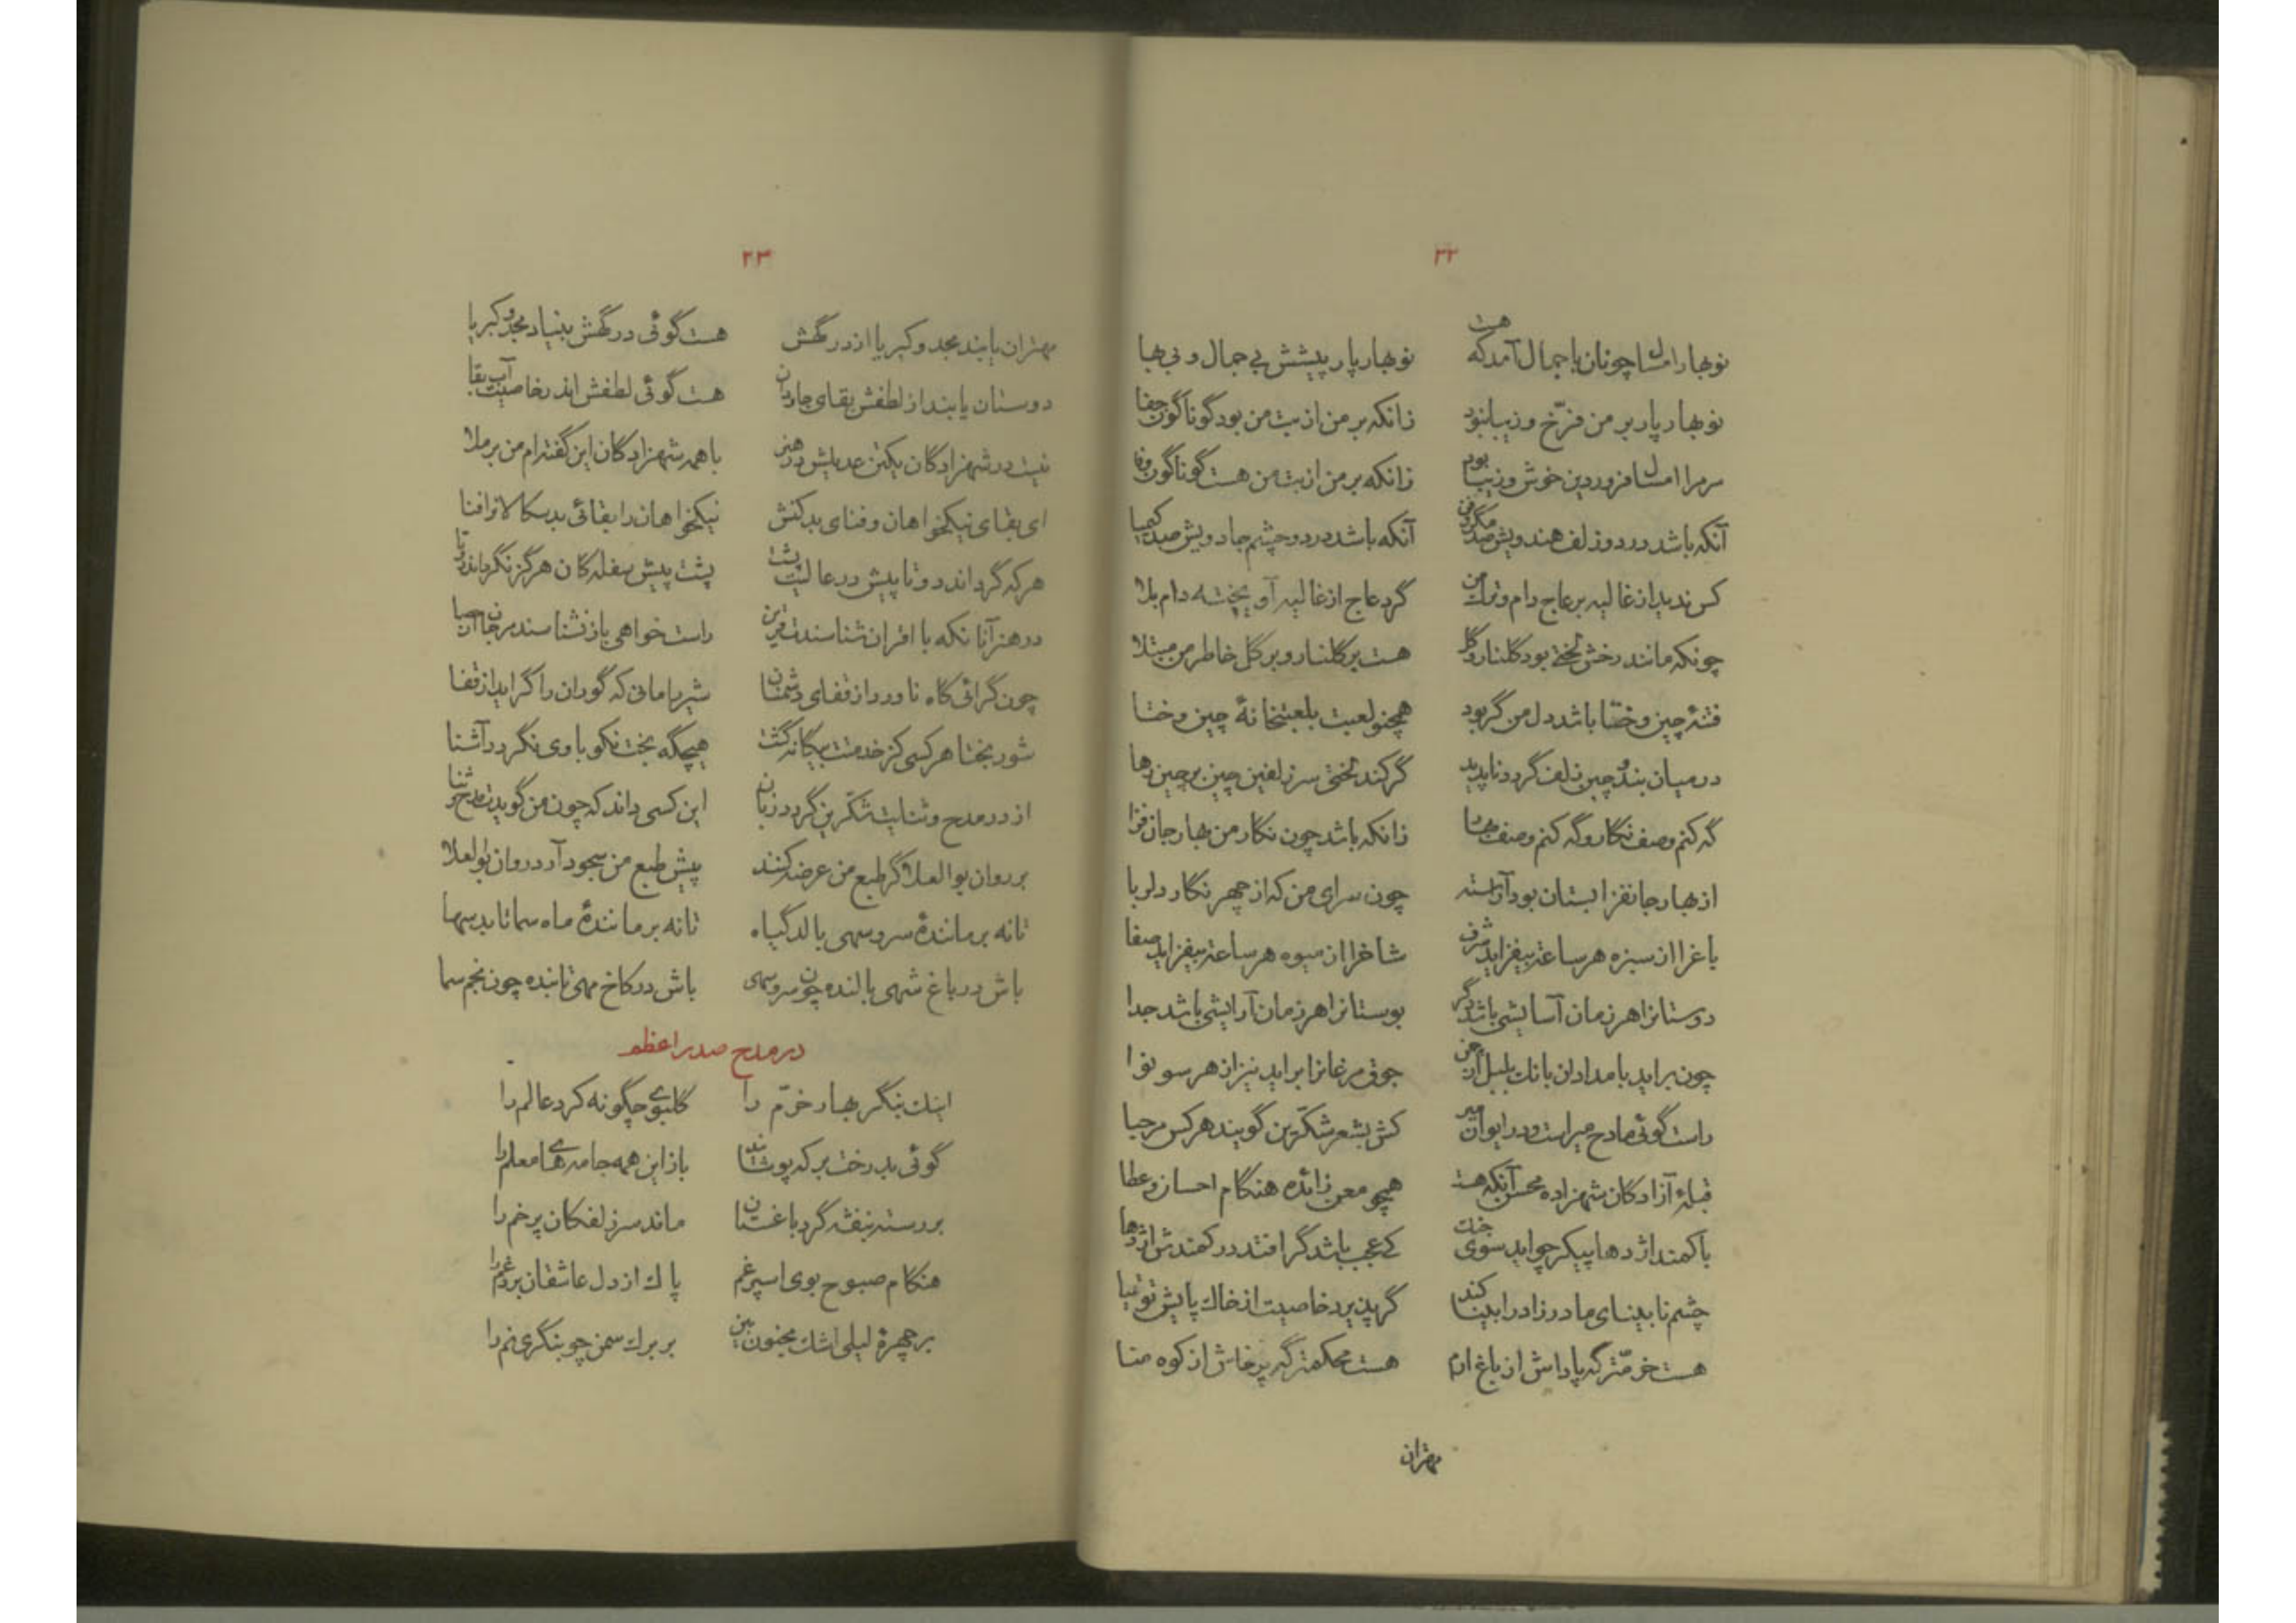 ۲۲
نوبهار امسال چونان باجمال آمد که هست نوبهار پار پیشش بی جمال و بی بها
نوبهار پار بر من فرّخ و زیبا نبود زانکه بر من از بت من بود گوناگون جفا
مر مرا امسال فروردین خوش و زیبا بود زانکه بر من از بت من هست گوناگون وفا
آنکه باشد در دو زلف هندویش صد مکر و فن آنکه باشد در دو چشم جادویش صد کیمیا
کس ندید از غالیه بر عاج دام و من گرد عاج از غالیه آویخته دام بلا
چونکه مانند رخش لختی بود گلنار و گل هست بر گلنار و بر گل خاطر من مبتلا
فتنهٔ چین و ختا باشد دل من گر بود همچنو لعبت بلعبتخانهٔ چین و ختا
در میان بند و چین زلف گردد ناپدید گر کند لختی سر زلفین چین بر چین رها
گه کنم وصف نگار و گه کنم وصف بهار زانکه باشد چون نگار من بهار جان فزا
از بهار جانفزا بستان بود آراسته چون سرای من که از چهر نگار دلربا
باغرا از سبزه هر ساعت بیفزاید شرف شاخرا از میوه هر ساعت بیفزاید صفا
دوستانرا هر زمان آسایشی باشد دگر بوستانرا هر زمان آرایشی باشد جدا
چون براید بامدادن بانك بلبل از چمن جوق مرغانرا براید نیز از هر سو نوا
راست گوئی مادح میراست و در ایوان میر کش بشعر شکّرین گویند هر کس مرحبا
قبلهٔ آزادگان شهزاده محسن آنکه هست همچو معن زائده هنگام احسان و عطا
باکمند اژدها پیکر چو اید سوی جنك کی عجب باشد گر افتد در کمندش اژدها
چشم نابینای مادرزاد را بینا کند گر پذیرد خاصیت از خاك پایش توتیا
هست خرمّتر گه پاداش از باغ ارم هست محکمتر گه پرخاش از کوه منا
مهتران
۲۳
مهتران یابند مجد و کبریا از درگهش هست گوئی درگهش بنیاد مجد و کبریا
دوستان یابند از لطفش بقای جاودان هست گوئی لطفش اندر خاصیت آب بقا
نیست در شهزادگان یکتن عدیلش در هنر با همه شهزادگان این گفته‌ام من برملا
ای بقای نیکخواهان و فنای بدکنش نیکخواهان را بقائی بدسکالانرا فنا
هر که گرداند دوتا پیش در عالیت پشت پشت پیش سفلکان هرگز نگرداند دوتا
در هنر آنانکه با اقران شناسندت قرین راست خواهی باز نشناسند مرجان از حصا
چون گرائی گاه ناورد از قفای دشمنان شیر را مانی که گوران را گراید از قفا
شوربختا هر کسی کز خدمتت بیگانه گشت هیچگه بخت نکو با وی نگردد آشنا
از در مدح و ثنایت شکّرین گردد زبان این کسی داند که چون من گویدت مدح و ثنا
بر روان بوالعلا گر طبع من عرضه کنند پیش طبع من سجود آرد روان بوالعلا
تا نه بر مانندهٔ سرو سهی بالد گیاه تا نه بر مانندهٔ ماه سما تابد سها
باش در باغ شهی بالنده چون سرو سهی باش در کاخ مهی تابنده چون نجم سما
در مدح صدر اعظم
اینك بنگر بهار خرّم را گلبوی چگونه کرد عالم را
گوئی بدرخت بر که پوشاند باز این همه جامه‌های معلم را
بررسته بنفشه گرد باغستان ماند سر زلفکان پرخم را
هنگام صبوح بوی اسپرغم پاك از دل عاشقان برد غم را
بر چهرهٔ لیلی اشك مجنون بین بر برك سمن چو بنگری نم را